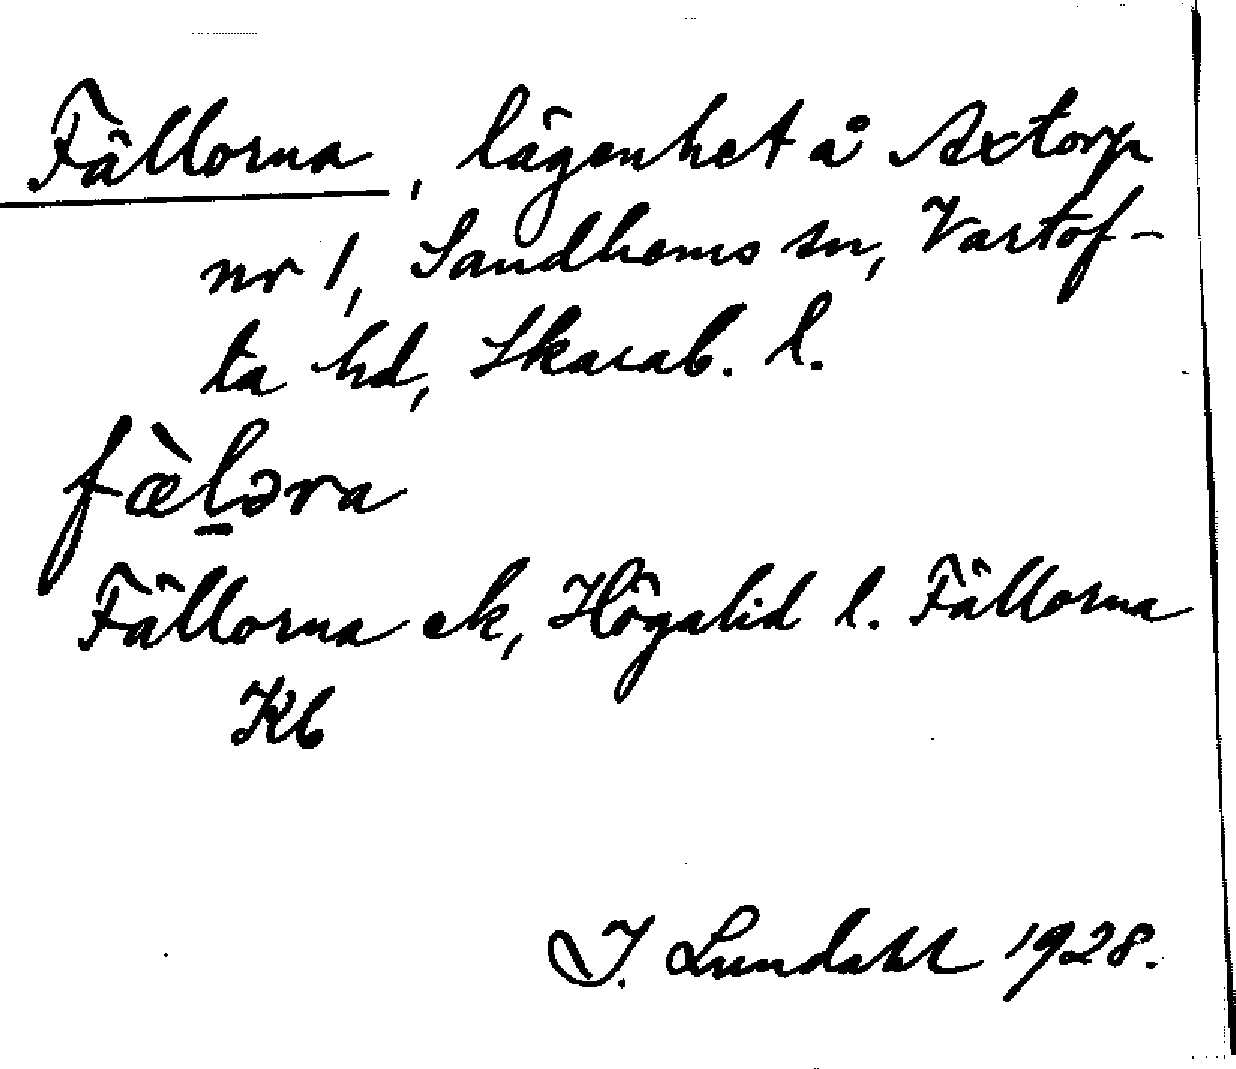 Fällorna, lägenhet å Axtorp
nr 1, Sandhems sn, Vartof-
ta hd, Skarab. l.
fæ̀l̠əra
Fällorna ek, Högalid l. Fällorna
Kb
I. Lundahl 1928.